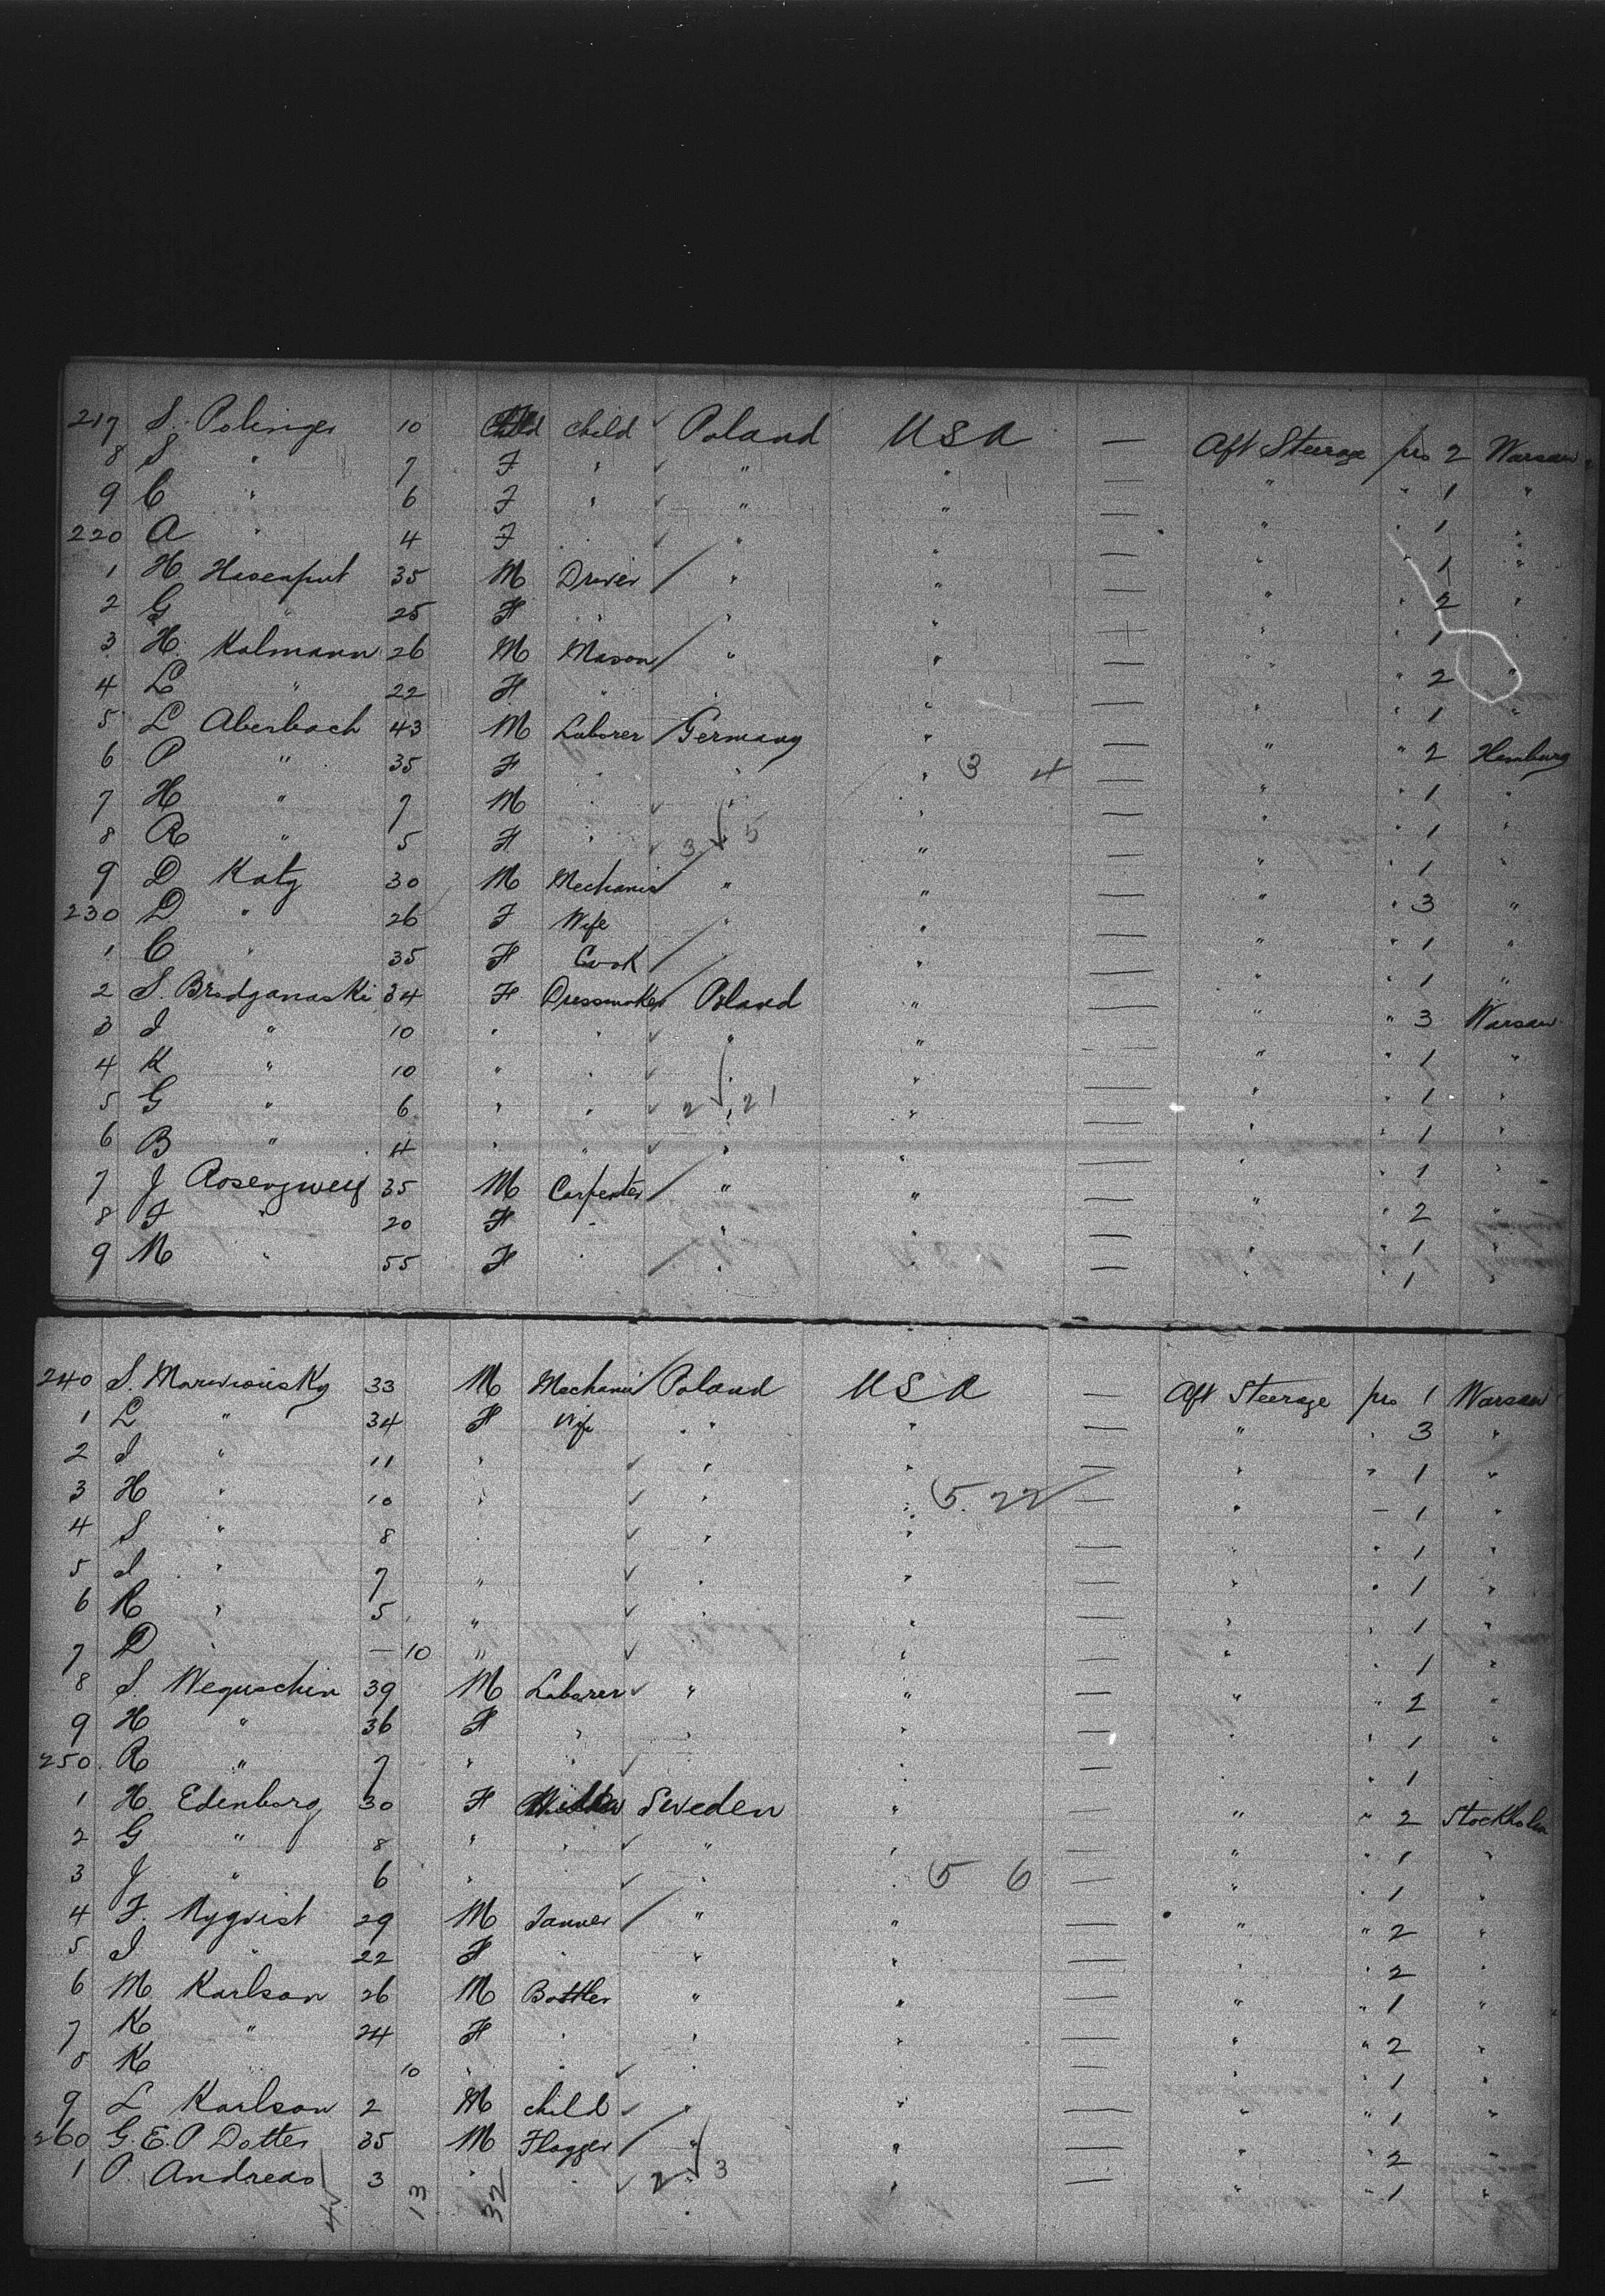 217 S. Polinger 10 Child child ✓ Poland USA — Aft Steerage pro 2 Warsaw
8 S " 7 F " ✓ " " — " " 1 "
9 C " 6 F " ✓ " " — " " 1 "
220 A " 4 F " ✓ " " — " " 1 "
1 H Hasenput 35 M Driver / " " — " " 2 "
2 G " 25 F " " " — " " 1 "
3 H. Kalmann 26 M Mason / " " — " " 2 "
4 L " 22 F " " " — " " 1 "
5 L Aberbach 43 M Laborer / Germany " — " " 2 Hamburg
6 P " 35 F " " " 3 4 — " " 1 "
7 H " 7 M " ✓ " " — " " 1 "
8 R " 5 F " ✓ 3 5 " — " " 1 "
9 D Katz 30 M Mechanic / " " — " " 3 "
230 D " 26 F Wife " " — " " 1 "
1 C " 35 F Cook / " " — " " 1 "
2 S. Brodganaski 34 F Dressmaker / Poland " — " " 3 Warsaw
3 I " 10 " " ✓ " " — " " 1 "
4 K " 10 " " ✓ " " — " " 1 "
5 G " 6 " " ✓ 2 21 " — " " 1 "
6 B " 4 " " ✓ " " — " " 1 "
7 J Rosenzweig 35 M Carpenter / " " — " " 2 "
8 F " 20 F " " " — " " 1 "
9 M " 55 F " / " " — " " 1 "
240 S. 33 M Mechanic / Poland USA — Aft Steerage pro 1 Warsaw
1 L " 34 F Wife " " — " " 3 "
2 I " 11 " ✓ " " — " " 1 "
3 H " 10 " ✓ " " 5 22 — " — 1 "
4 S " 8 " ✓ " " — " " 1 "
5 I " 7 " ✓ " " — " " 1 "
6 R " 5 " ✓ " " — " " 1 "
7 D " — 10 " ✓ " — " " 1 "
8 S. Weguschin 39 M Laborer ✓ " " — " " 2 "
9 H " 36 F " " " — " " 1 "
250 R " 7 " " ✓ " — " " 1 "
1 H Edenborg 30 F Sweden " — " " 2 Stockholm
2 G " 8 " " ✓ " " — " " 1 "
3 J " 6 " ✓ " " 5 6 — " " 1 "
4 F. Nyqvist 29 M Tanner / " " — " " 2 "
5 I " 22 F " " " — " 2 "
6 M Karlson 26 M Bottler " " — " " 1 "
7 K " 24 F " " " — " " 2 "
8 K " 10 " " ✓ " — " " 1 "
9 L Karlson 2 M child ✓ " " — " " 1 "
260 G. E. P Dotter 35 M Flagger / " " — " " 2 "
1 P. Andreas 3 " " ✓ 2 3 " — " " 1 "
13 32